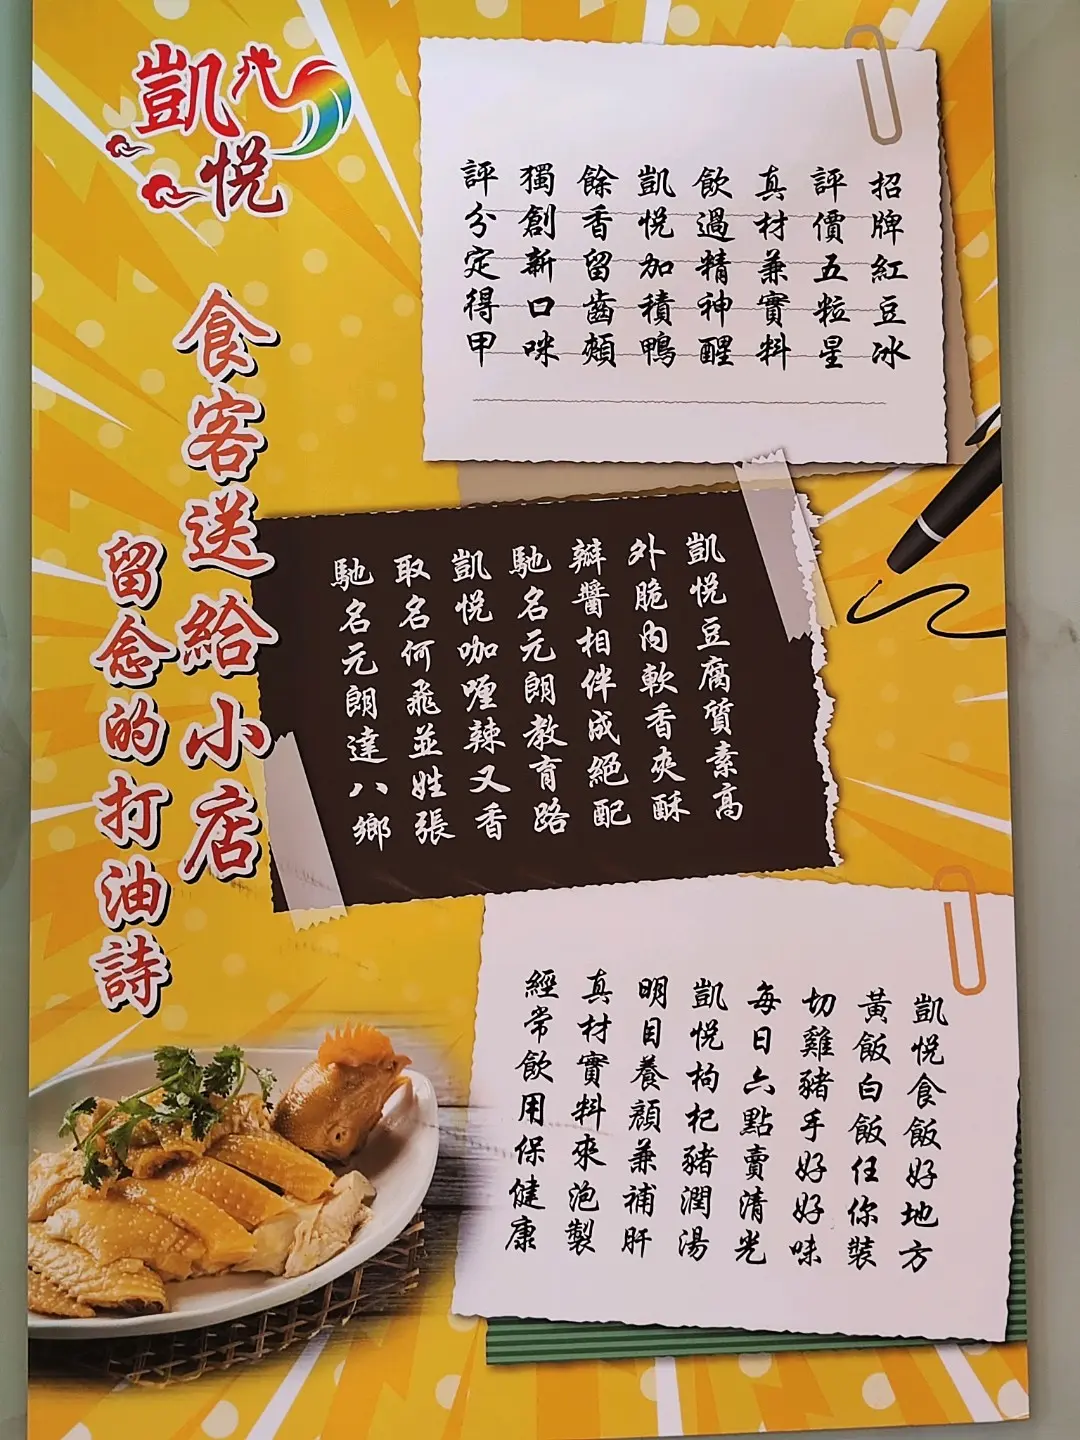 凱悅
食客送給小店
留念的打油詩
招牌紅豆冰
評價五粒星
真材兼實料
飲過精神醒
凱悅加積鴨
餘香留齒頰
獨創新口味
評分定得甲
凱悅豆腐質素高
外脆內軟香夾酥
辦醬相伴成絕配
馳名元朗教育路
凱悅咖喱辣又香
取名何飛並姓張
馳名元朗達八鄉
凱悅食飯好地方
黃飯白飯任你裝
切雞豬手好好味
每日六點賣清光
凱悅枸杞豬潤湯
明目養顏兼補肝
真材實料來泡製
經常飲用保健康